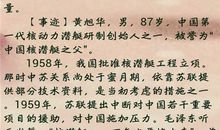 量。
【事迹】黄旭华，男，87岁，中国第
一代核动力潜艇研制创始人之一，被誉为
“中国核潜艇之父”。
1958年，我国批准核潜艇工程立项。
那时中苏关系尚处于蜜月期，依靠苏联提
供部分技术资料，是当初考虑的措施之一
。1959年，苏联提出中断对中国若干重要
项目的援助，对中国施加压力。毛泽东听